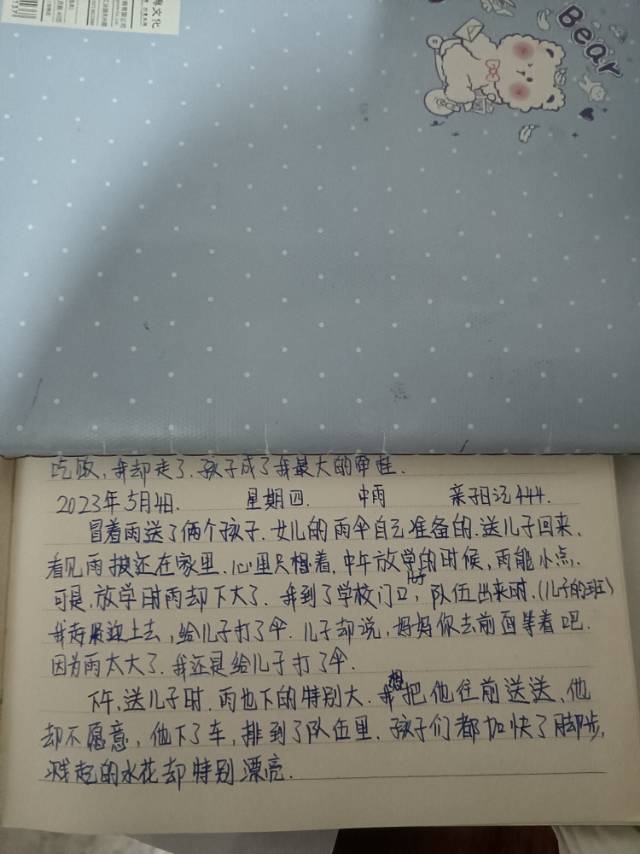 Bear
吃饭,我却走了.孩子成了我最大的牵挂.
2023年5月4日. 星期四. 中雨 亲子日记444.
冒着雨送了俩个孩子.女儿的雨伞自己准备的.送儿子回来,
看见雨披还在家里.心里只想着,中午放学的时候,雨能小点.
可是,放学时雨却下大了.我到了学校门口时,队伍出来时.(儿子的班)
我赶紧迎上去,给儿子打了伞.儿子却说,妈妈你去前面等着吧.
因为雨太大了.我还是给儿子打了伞.
下午,送儿子时.雨也下的特别大.我想把他往前送送,他
却不愿意,他下了车,排到了队伍里.孩子们都加快了脚步,
溅起的水花却特别漂亮.